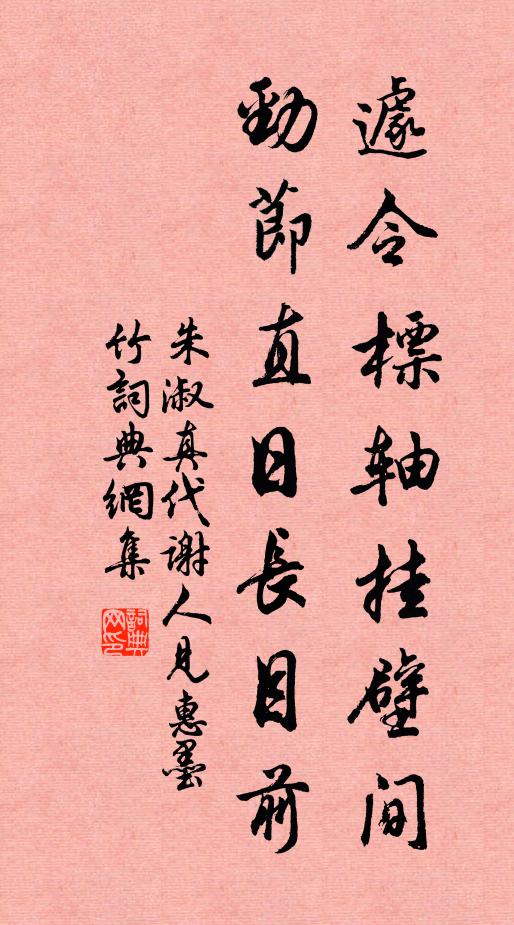 遽令標軸挂壁間
勁節直日長目前
朱淑真代謝人見惠墨
竹詞典網集
詞典網印